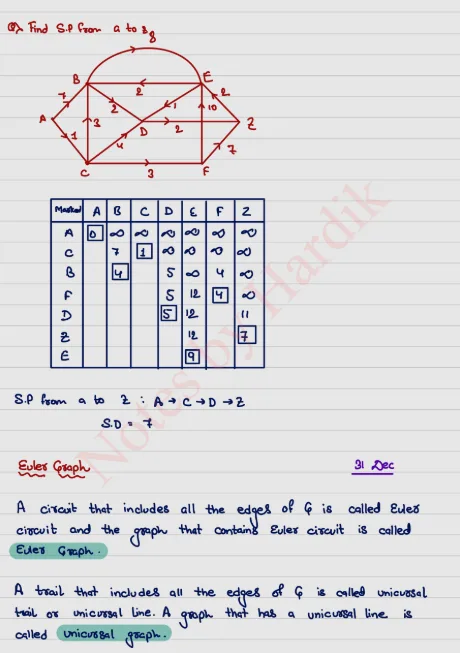 Q> Find S.P from a to z
8
B E
7 2 2
2 1
A 3 D 2 10 Z
1 4
7
C 3 F
Marked A B C D E F Z
A 0 ∞ ∞ ∞ ∞ ∞ ∞
C 7 1 ∞ ∞ ∞ ∞
B 4 5 ∞ 4 ∞
F 5 12 4 ∞
D 5 12 11
Z 12 7
E 9
S.P from a to z : A → C → D → Z
S.D = 7
Euler Graph 31 Dec
A circuit that includes all the edges of G is called Euler
circuit and the graph that contains Euler circuit is called
Euler Graph.
A trail that includes all the edges of G is called unicursal
trail or unicursal line. A graph that has a unicursal line is
called unicursal graph.
Notes by Hardik